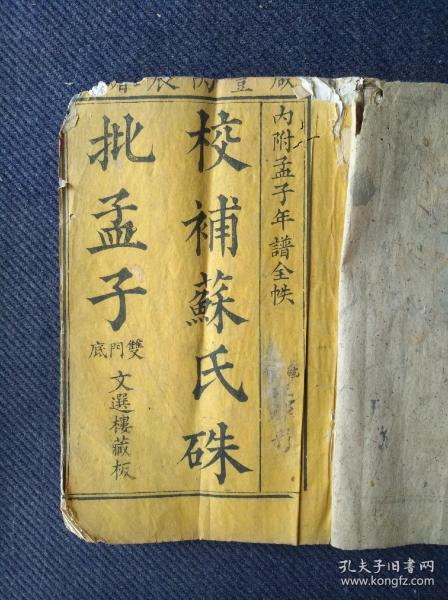 內附孟子年譜全帙
校補蘇氏硃
批孟子
雙門底
文選樓藏板
孔夫子旧书网
www.kongfz.com